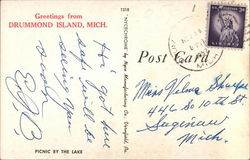 Greetings from
DRUMMOND ISLAND, MICH.
1218
Post Card
Hi' got here
safe. Will be
seeing you
soon
Miss Velma Sharpe
446 So 10th St
Saginaw
Mich.
PICNIC BY THE LAKE